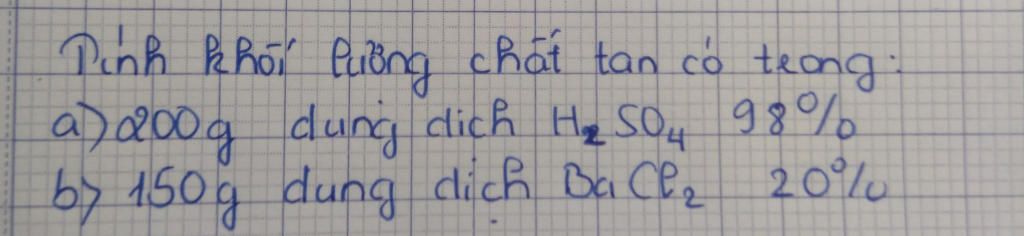 Tính khối lượng chất tan có trong:
a) 200g dung dịch H₂SO₄ 98%
b) 150g dung dịch BaCl₂ 20%